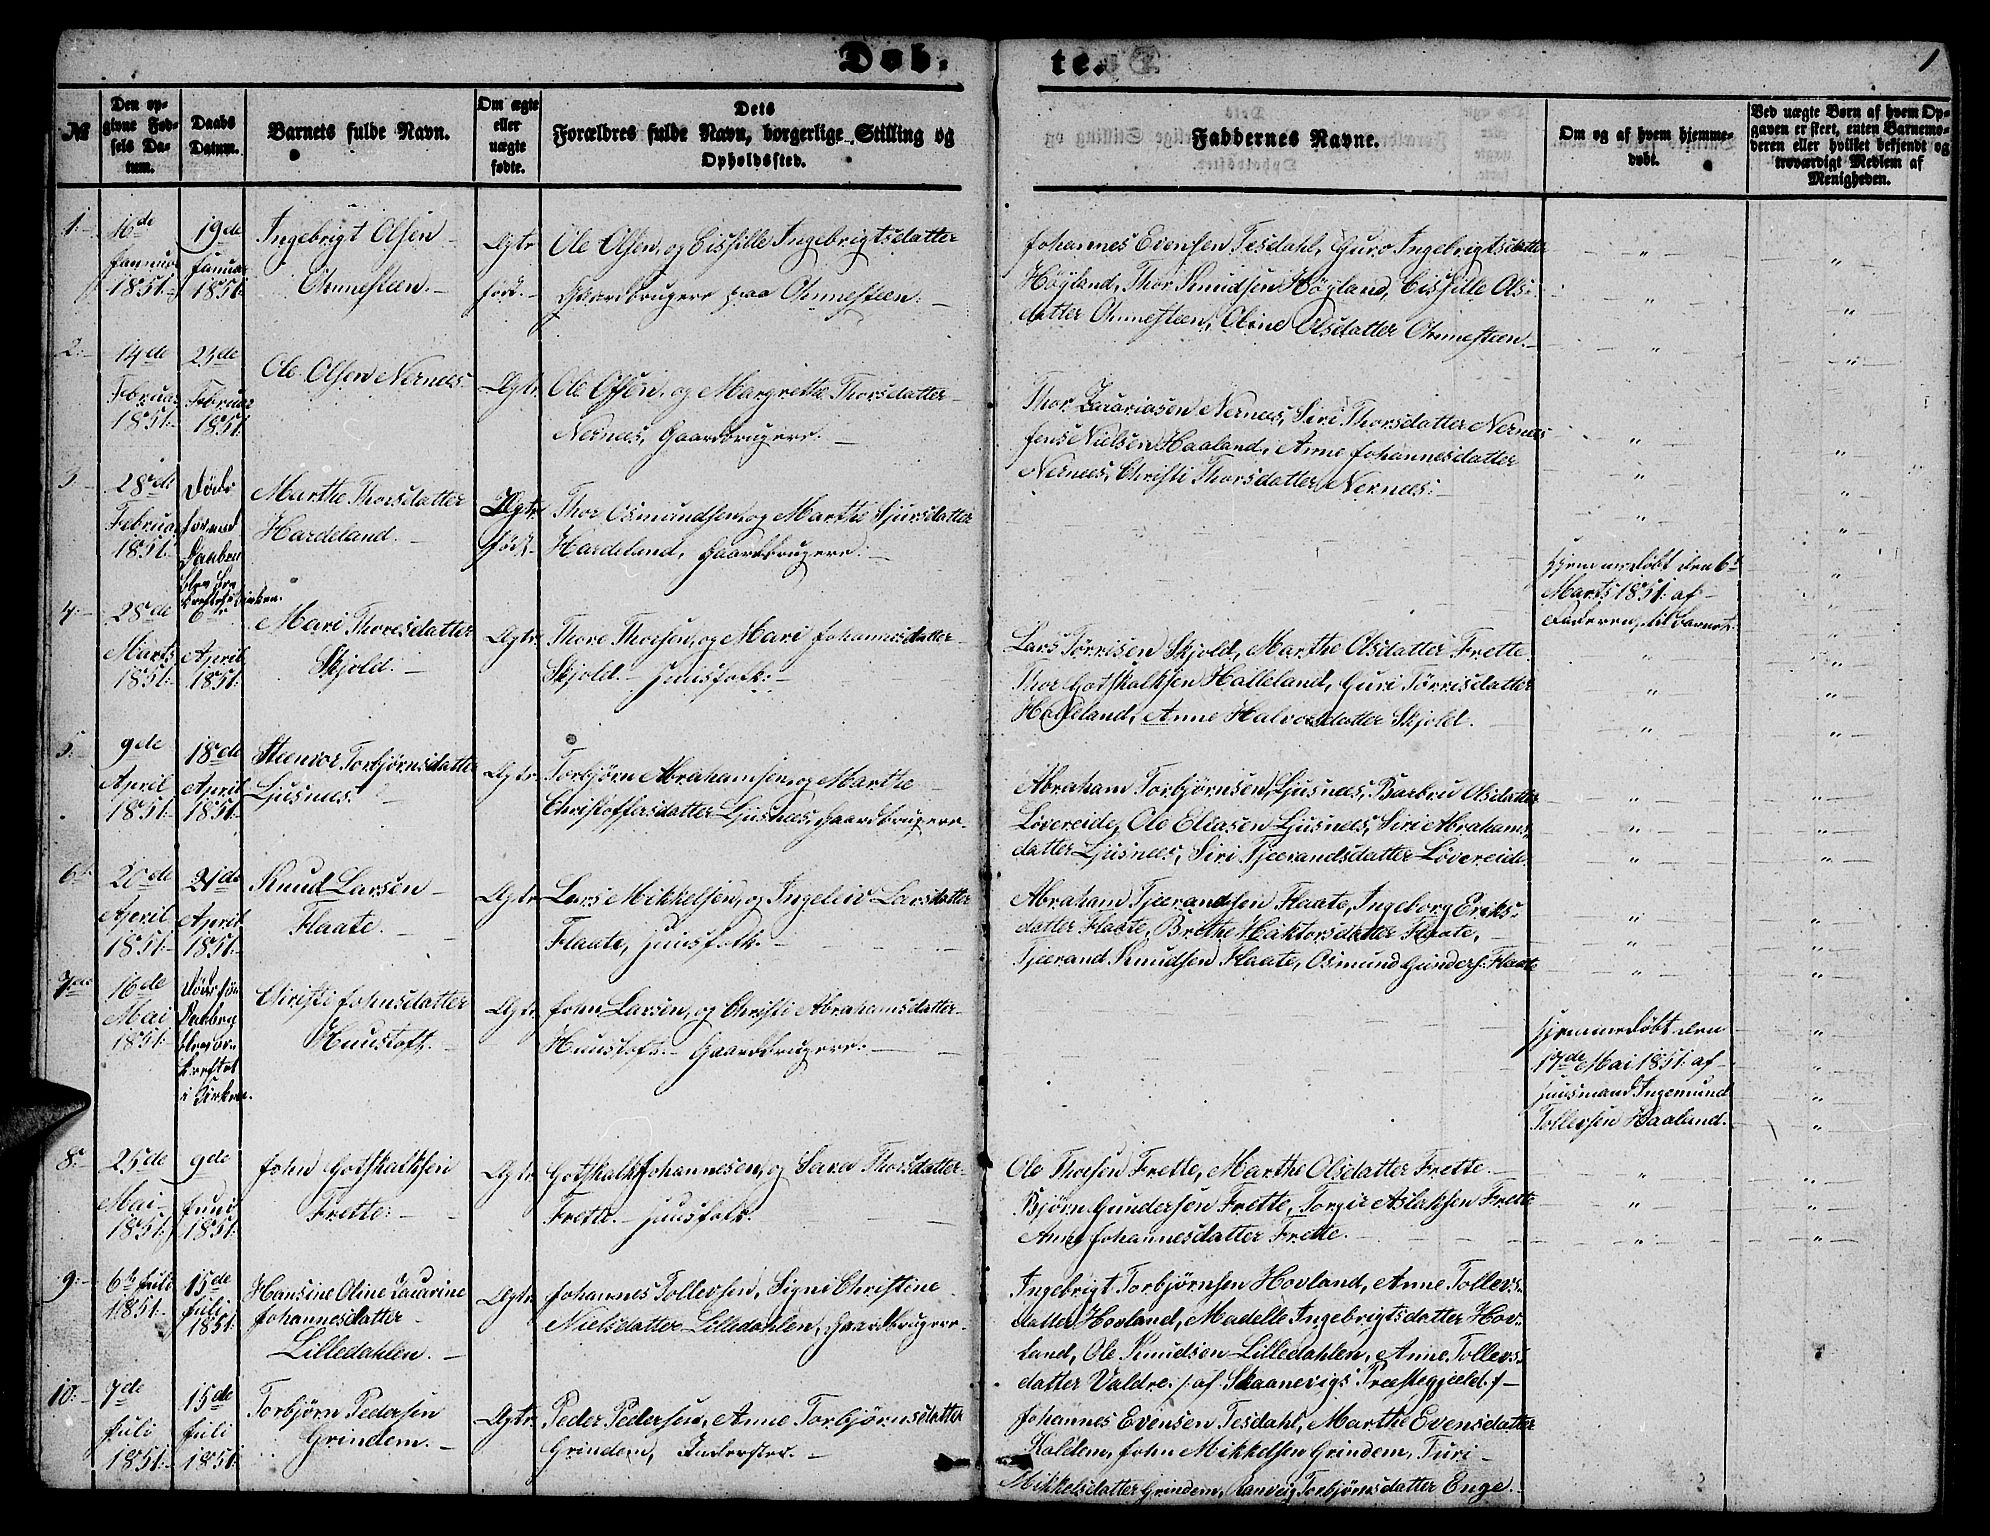 Døb.
te.
1
№
Den op-
givne Fød-
sels Da-
tum.
Daabs
Datum.
Barnets fulde Navn.
Om ægte
eller
uægte
fødte.
Dets
Forældres fulde Navn, borgerlige Stilling og
Opholdssted.
Faddernes Navne.
Om og af hvem hjemme-
døbt.
Ved uægte Børn af hvem Op-
gaven er skeet, enten Barnemo-
deren eller hvilket bekjendt og
troværdigt Medlem af
Menigheden.
1.
16de
Januar
1851
19de
Januar
1851
Ingebrigt Olsen
Ohmesteen.
Ægte
født.
Ole Olsen, og Cissille Ingebrigtsdatter
Gaardbrugere paa Ohmesteen.
Johannes Evensen Tesdahl, Guro Ingebrigtsdatter
Höyland, Thor Knudsen Höyland, Cissille Ols-
datter Ohmesteen, Oline Olsdatter Ohmesteen.
2.
14de
Februar
1851
25de
Februar
1851
Ole Olsen Nernees.
Ægte
Ole Olsen, og Margrethe Thorsdatter
Nernees, Gaardbrugere.
Thor Zacariasen Nernees, Siri Thorsdatter Nernees
Jens Nielsen Haaland, Anne Johannesdatter
Nernees, Christi Thorsdatter Nernees.
3
28de
Februar
1851
Døde
forend
Daaben
blev be-
kreftet i Kirken.
Marthe Thorsdatter
Hardeland.
Ægte
født.
Thor Osmundsen, og Marthe Sjursdatter
Hardeland, Gaardbrugere.
Hjemmedøbt den 6te
Marts 1851 af
Faderen til Barnet.
4.
28de
Marts
1851
6te
April
1851
Mari Thoresdatter
Skjold.
Ægte
Thore Thorsen, og Mari Johannesdatter
Skjold. Huusfolk.
Lars Törrisen Skjold, Marthe Olsdatter Frette
Thor Gotskalksen Halleland, Guri Törrisdatter
Halleland, Anne Halvorsdatter Skjold.
5.
9de
April
1851
18de
April
1851
Steenvor Torbjörnsdatter
Ljusnes.
Ægte
Torbjörn Abrahamsen, og Marthe
Christoffersdatter Ljusnees, Gaardbrugere.
Abraham Torbjörnsen, Ljusnees, Barbru Olsdatter
Lövereide, Ole Eliasen Ljusnees, Siri Abrahams-
datter Ljusnees, Siri Tjærandsdatter Lövereide.
6.
20de
April
1851
21de
April
1851
Knud Larsen
Flaate.
Ægte
Lars Mikkelsen, og Ingeleiv Larsdatter
Flaate, Huusfolk.
Abraham Tjærandsen Flaate, Ingeborg Eriks-
datter Flaate, Brithe Hæktorsdatter Flaate,
Tjærand Knudsen Flaate, Osmund Gunders. Flaate
7de
16de
Mai
1851
Døde før
Daaben
blev be-
kreftet
i Kirken.
Christi Johnsdatter
Huustoft.
Ægte
John Larsen, og Christi Abrahamsdatter
Huustoft. Gaardbrugere.
Hjemmedøbt den
17de Mai 1851 af
Huusmand Ingemund
Tollevsen Haaland.
8.
25de
Mai
1851
9de
Juni
1851
John Gotskalksen
Frette.
Ægte
Gotskalk Johannesen, og Sara Thorsdatter
Frette. Huusfolk.
Ole Thorsen Frette, Marthe Olsdatter Frette.
Björn Gundersen Frette, Torgie Aslaksen Frette
Anne Johannesdatter Frette.
9.
6te Juli
1851
15de
Juli
1851
Hansine Oline Lavrine
Johannesdatter
Lilledahlen.
Ægte
Johannes Tollevsen, Signi Christine
Nielsdatter Lilledahlen, Gaardbrugere.
Ingebrigt Torbjörnsen Hovland, Anne Tollevs-
datter Hovland, Madelle Ingebrigtsdatter Hov-
land, Ole Knudsen Lilledahlen, Anne Tollevs-
datter Valdre /: af Skaanevigs Præstegjæld :/
10.
7de
Juli
1851
15de
Juli
1851
Torbjörn Pedersen
Grindem.
Ægte
Peder Pedersen, Anne Torbjörnsdatter
Grindem, Inderster.
Johannes Evensen Tesdahl, Marthe Evensdatter
Kaldem, John Mikkelsen Grindem, Turi
Mikkelsdatter Grindem, Ranveig Torbjörnsdatter Enge.